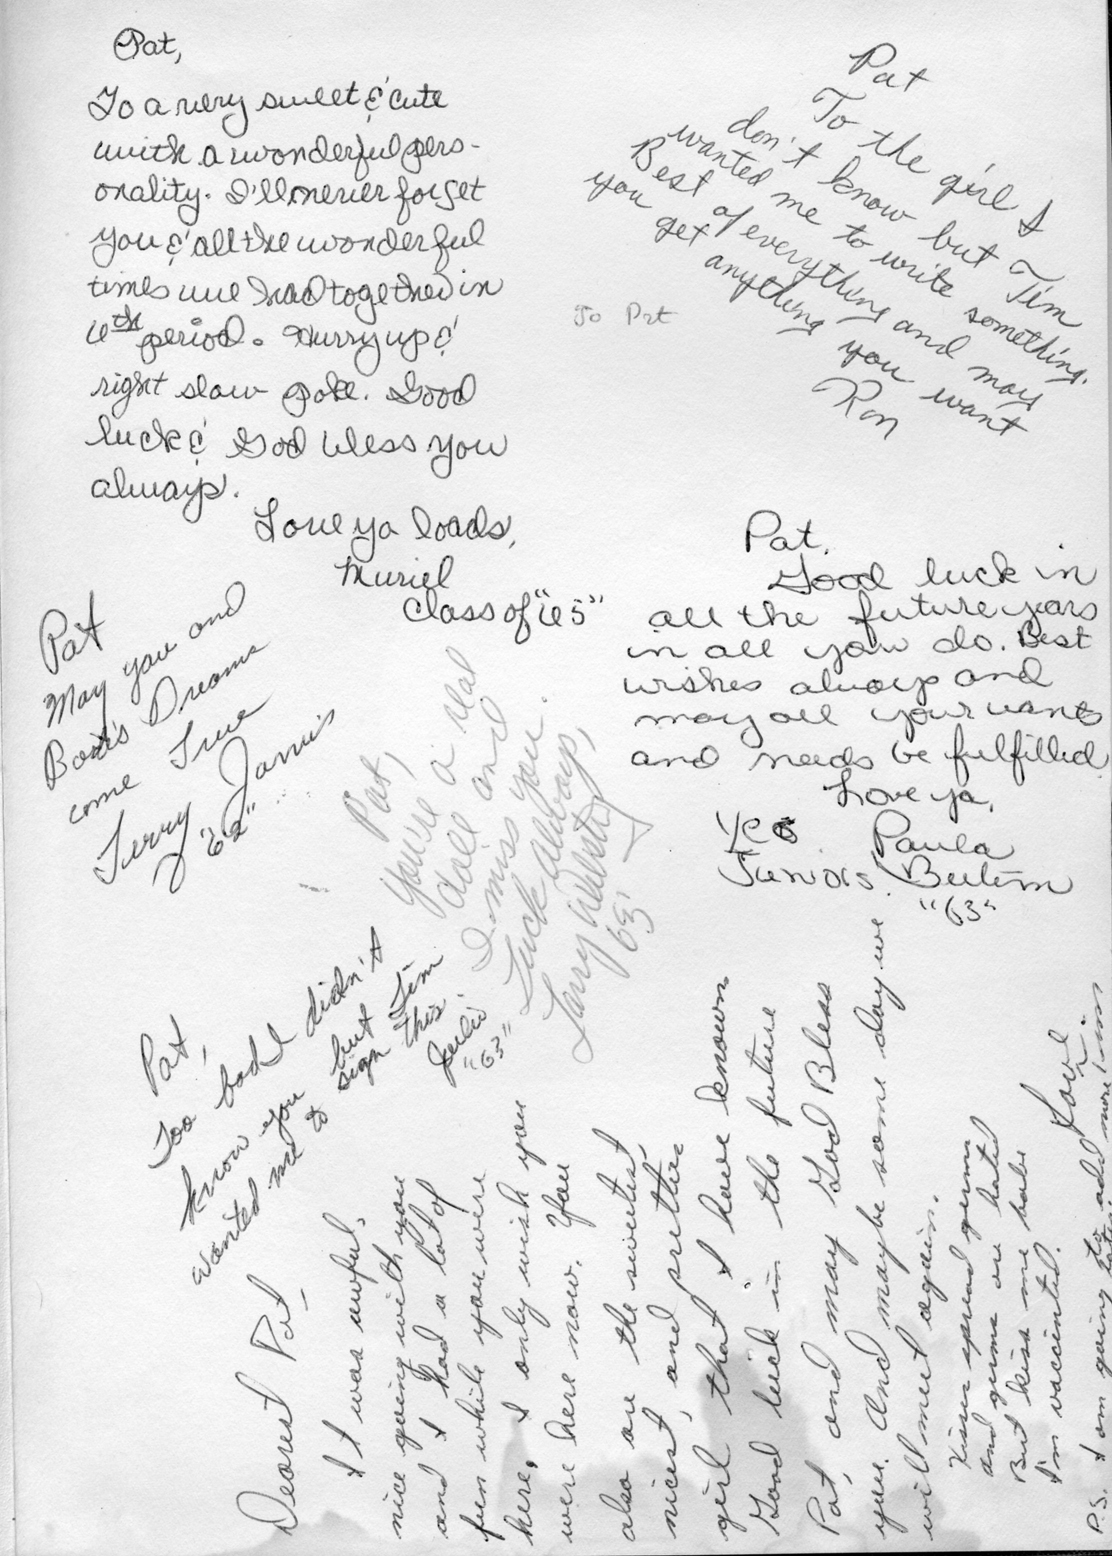 Pat,
To a very sweet & cute
with a wonderful pers-
onality. I'll never forget
you & all the wonderful
times we had together in
6th period. Hurry up &
right slow poke. Good
luck & God bless you
always.
Love ya loads,
Muriel
Class of "65"
Pat
To the girl I
don't know but Tim
wanted me to write something.
Best of everything and may
you get anything you want
Ron
To Pat
Pat,
Good luck in
all the future years
in all you do. Best
wishes always and
may all your wants
and needs be fulfilled
Love ya,
Paula
Juniors
"63"
Pat
May you and
Dreams
come True
Terry Jarvis
"62"
Pat,
You're a real
doll and
I miss you.
Luck always,
Larry
63
Pat,
Too bad I didn't
know you but Tim
wanted me to sign this
Julio
"63"
Dearest Pat
It was awful
nice going with you
and I had a lot of
fun while you were
here, I only wish you
were here now. You
also are the sweetest
nicest, and prettiest
girl that I have known
Good luck in the future
Pat, and may God Bless
you. And maybe some day we
will meet again.
Kisses spread germs
and germs are hated
But kiss me babe
I'm vaccinated.
Love
P.S. I am going to add more